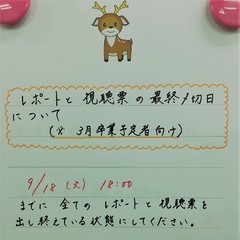 レポートと視聴票の最終〆切日
について
(※ 3月卒業予定者向け)
9/18 (火) 18:00
までに 全ての レポートと 視聴票を
出し終えている状態にしてください。